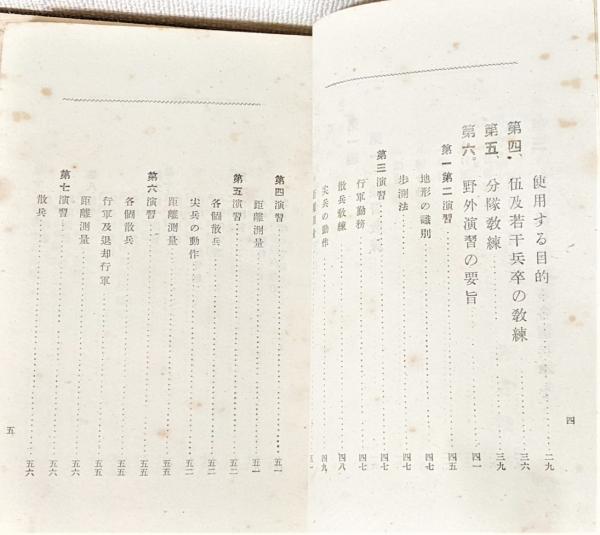 使用する目的……二九
第四、伍及若干兵卒の教練……三六
第五、分隊教練……三九
第六、野外演習の要旨……四一
第一第二演習……四五
地形の識別……四七
歩測法……四七
第三演習……四七
行軍勤務……四七
散兵教練……四八
尖兵の動作……四九
四
第四演習……五一
距離測量……五一
第五演習……五二
各個散兵……五二
尖兵の動作……五二
距離測量……五五
第六演習……五五
各個散兵……五五
行軍及退却行軍……五五
距離測量……五六
第七演習……五六
散兵……五六
五